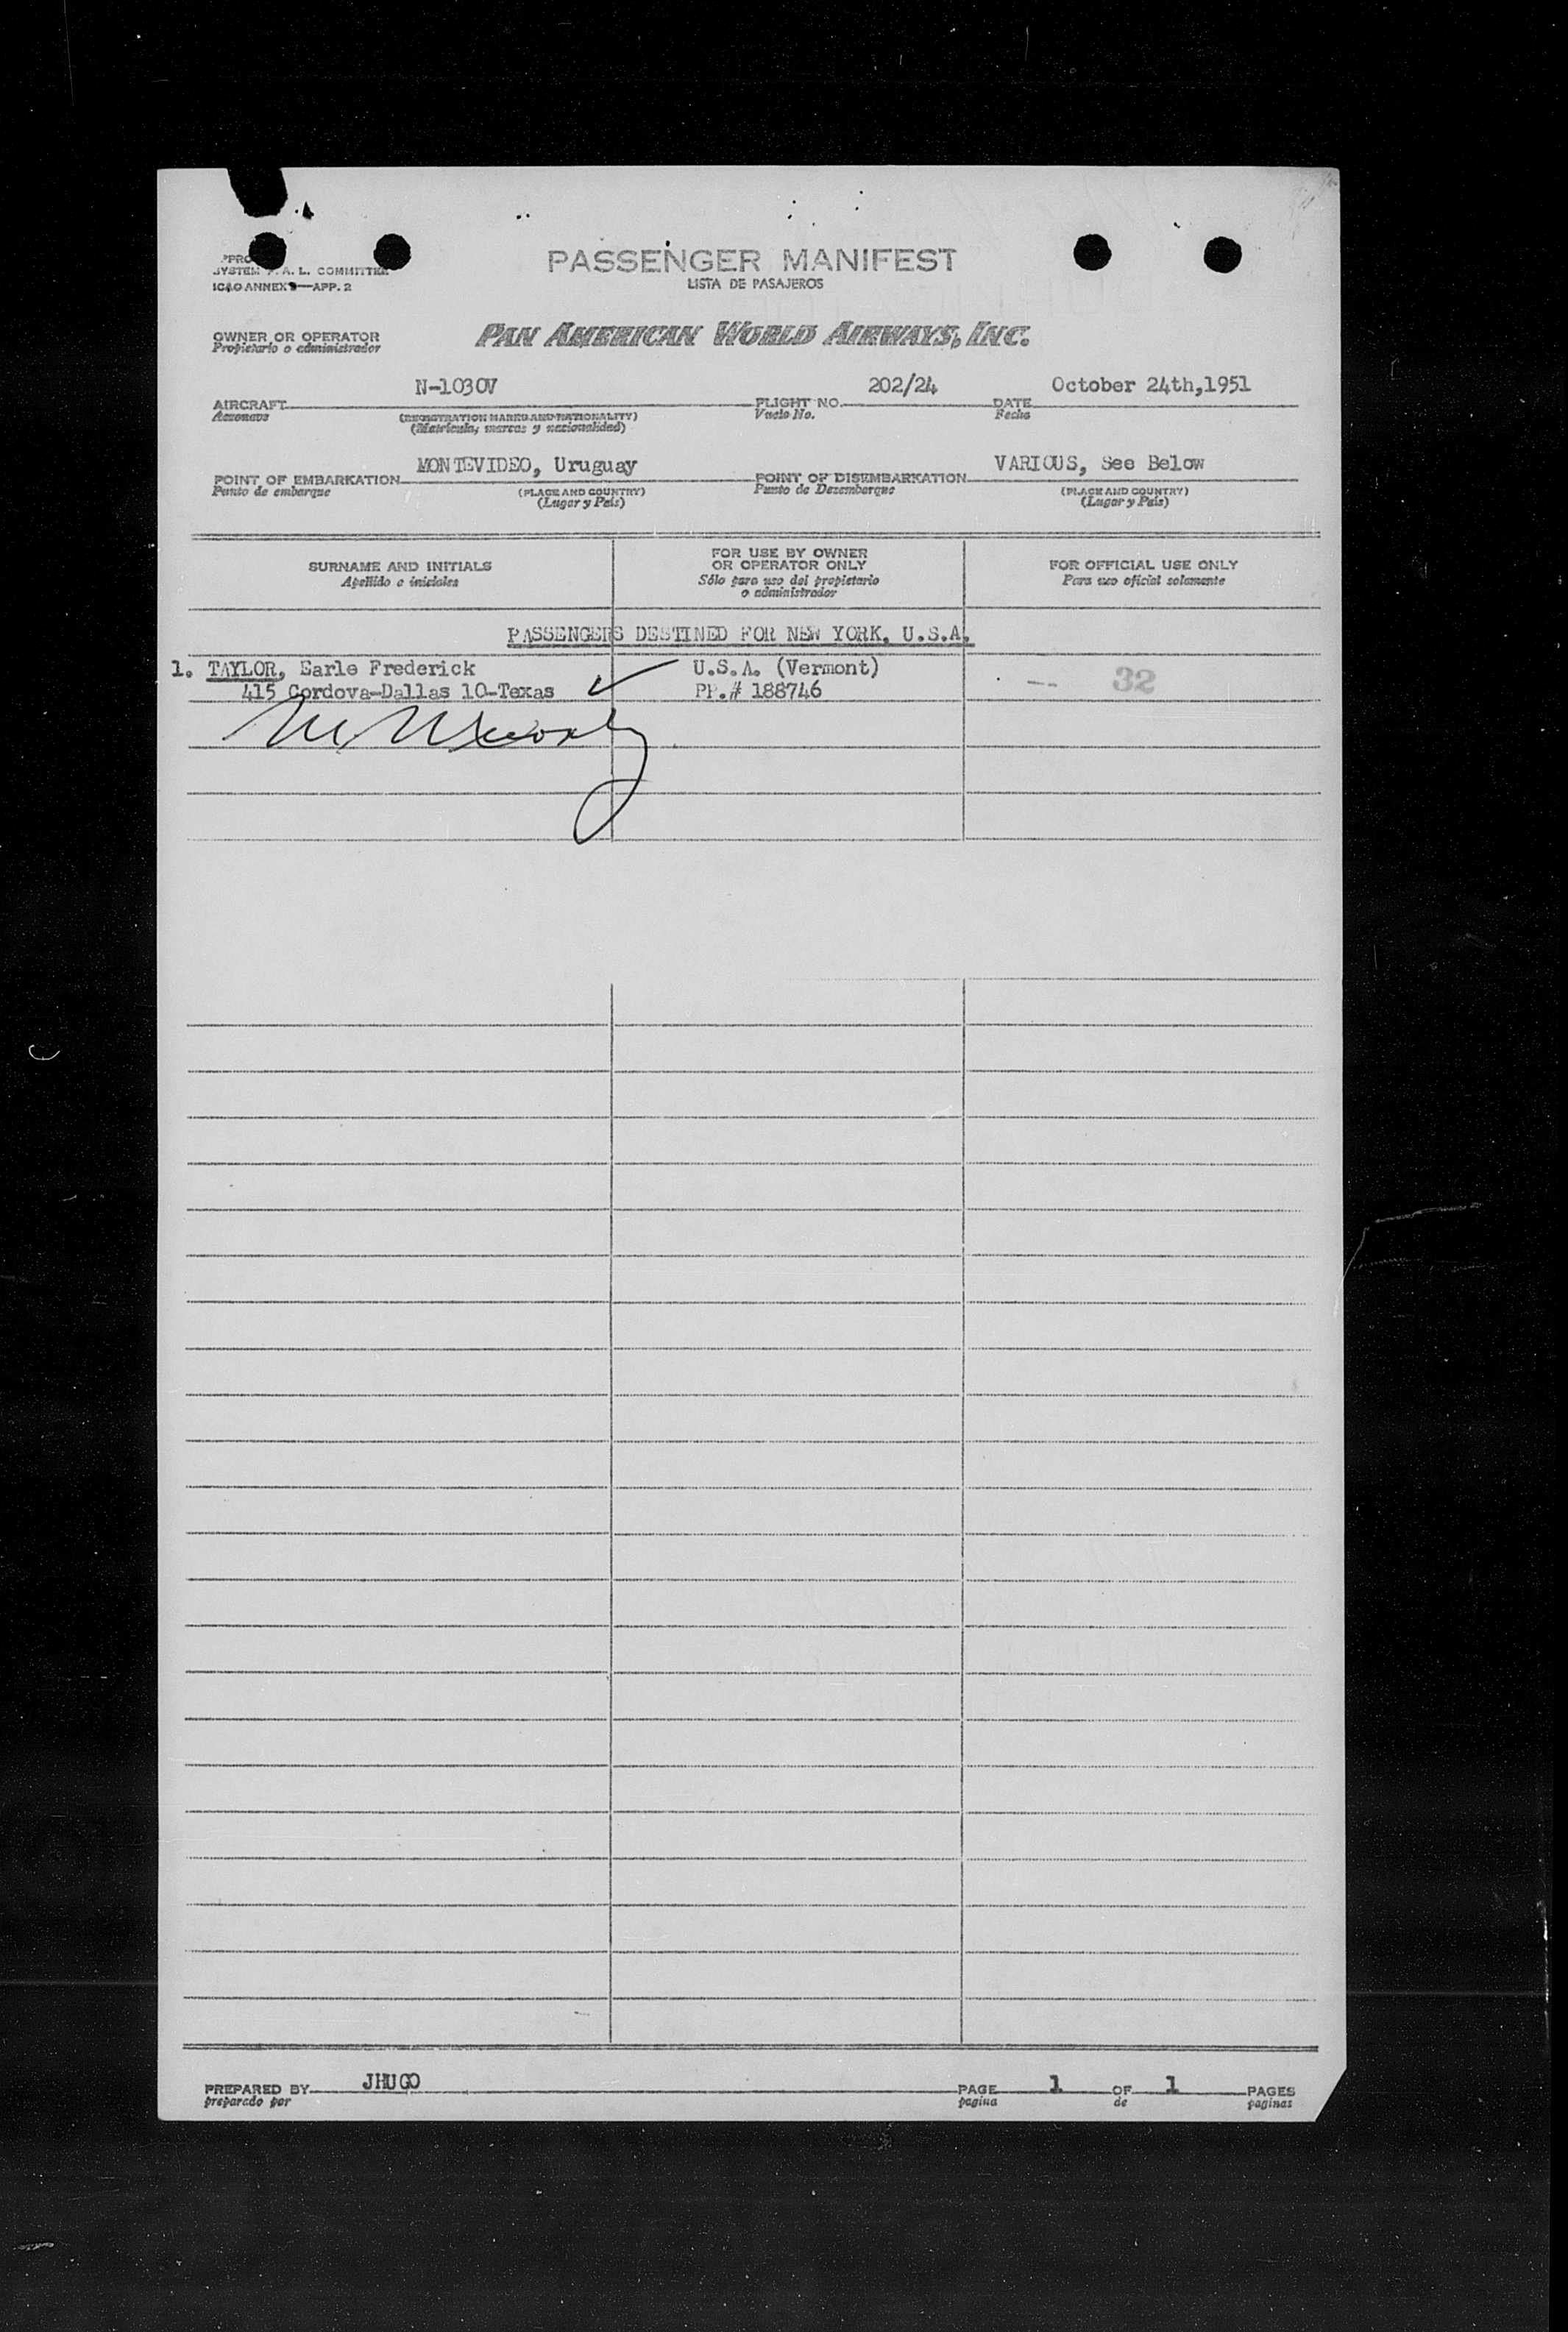 PASSENGER MANIFEST
LISTA DE PASAJEROS
SYSTEM F. A. L. COMMITTEE
ICAO ANNEX 9—APP. 2
OWNER OR OPERATOR
Propietario o administrador
PAN AMERICAN WORLD AIRWAYS, INC.
AIRCRAFT N-1030V FLIGHT NO. 202/24 DATE October 24th,1951
Aeronave (REGISTRATION MARKS AND NATIONALITY) Vuelo No. Fecha
(Matrícula, marcas y nacionalidad)
POINT OF EMBARKATION MONTEVIDEO, Uruguay POINT OF DISEMBARKATION VARIOUS, See Below
Punto de embarque (PLACE AND COUNTRY) Punto de Desembarque (PLACE AND COUNTRY)
(Lugar y País) (Lugar y País)
SURNAME AND INITIALS
Apellido e iniciales
FOR USE BY OWNER
OR OPERATOR ONLY
Sólo para uso del propietario
o administrador
FOR OFFICIAL USE ONLY
Para uso oficial solamente
PASSENGERS DESTINED FOR NEW YORK, U.S.A.
1. TAYLOR, Earle Frederick U.S.A. (Vermont)
415 Cordova-Dallas 10-Texas PP.# 188746 -- 32
PREPARED BY JHUGO PAGE 1 OF 1 PAGES
preparado por pagina de paginas